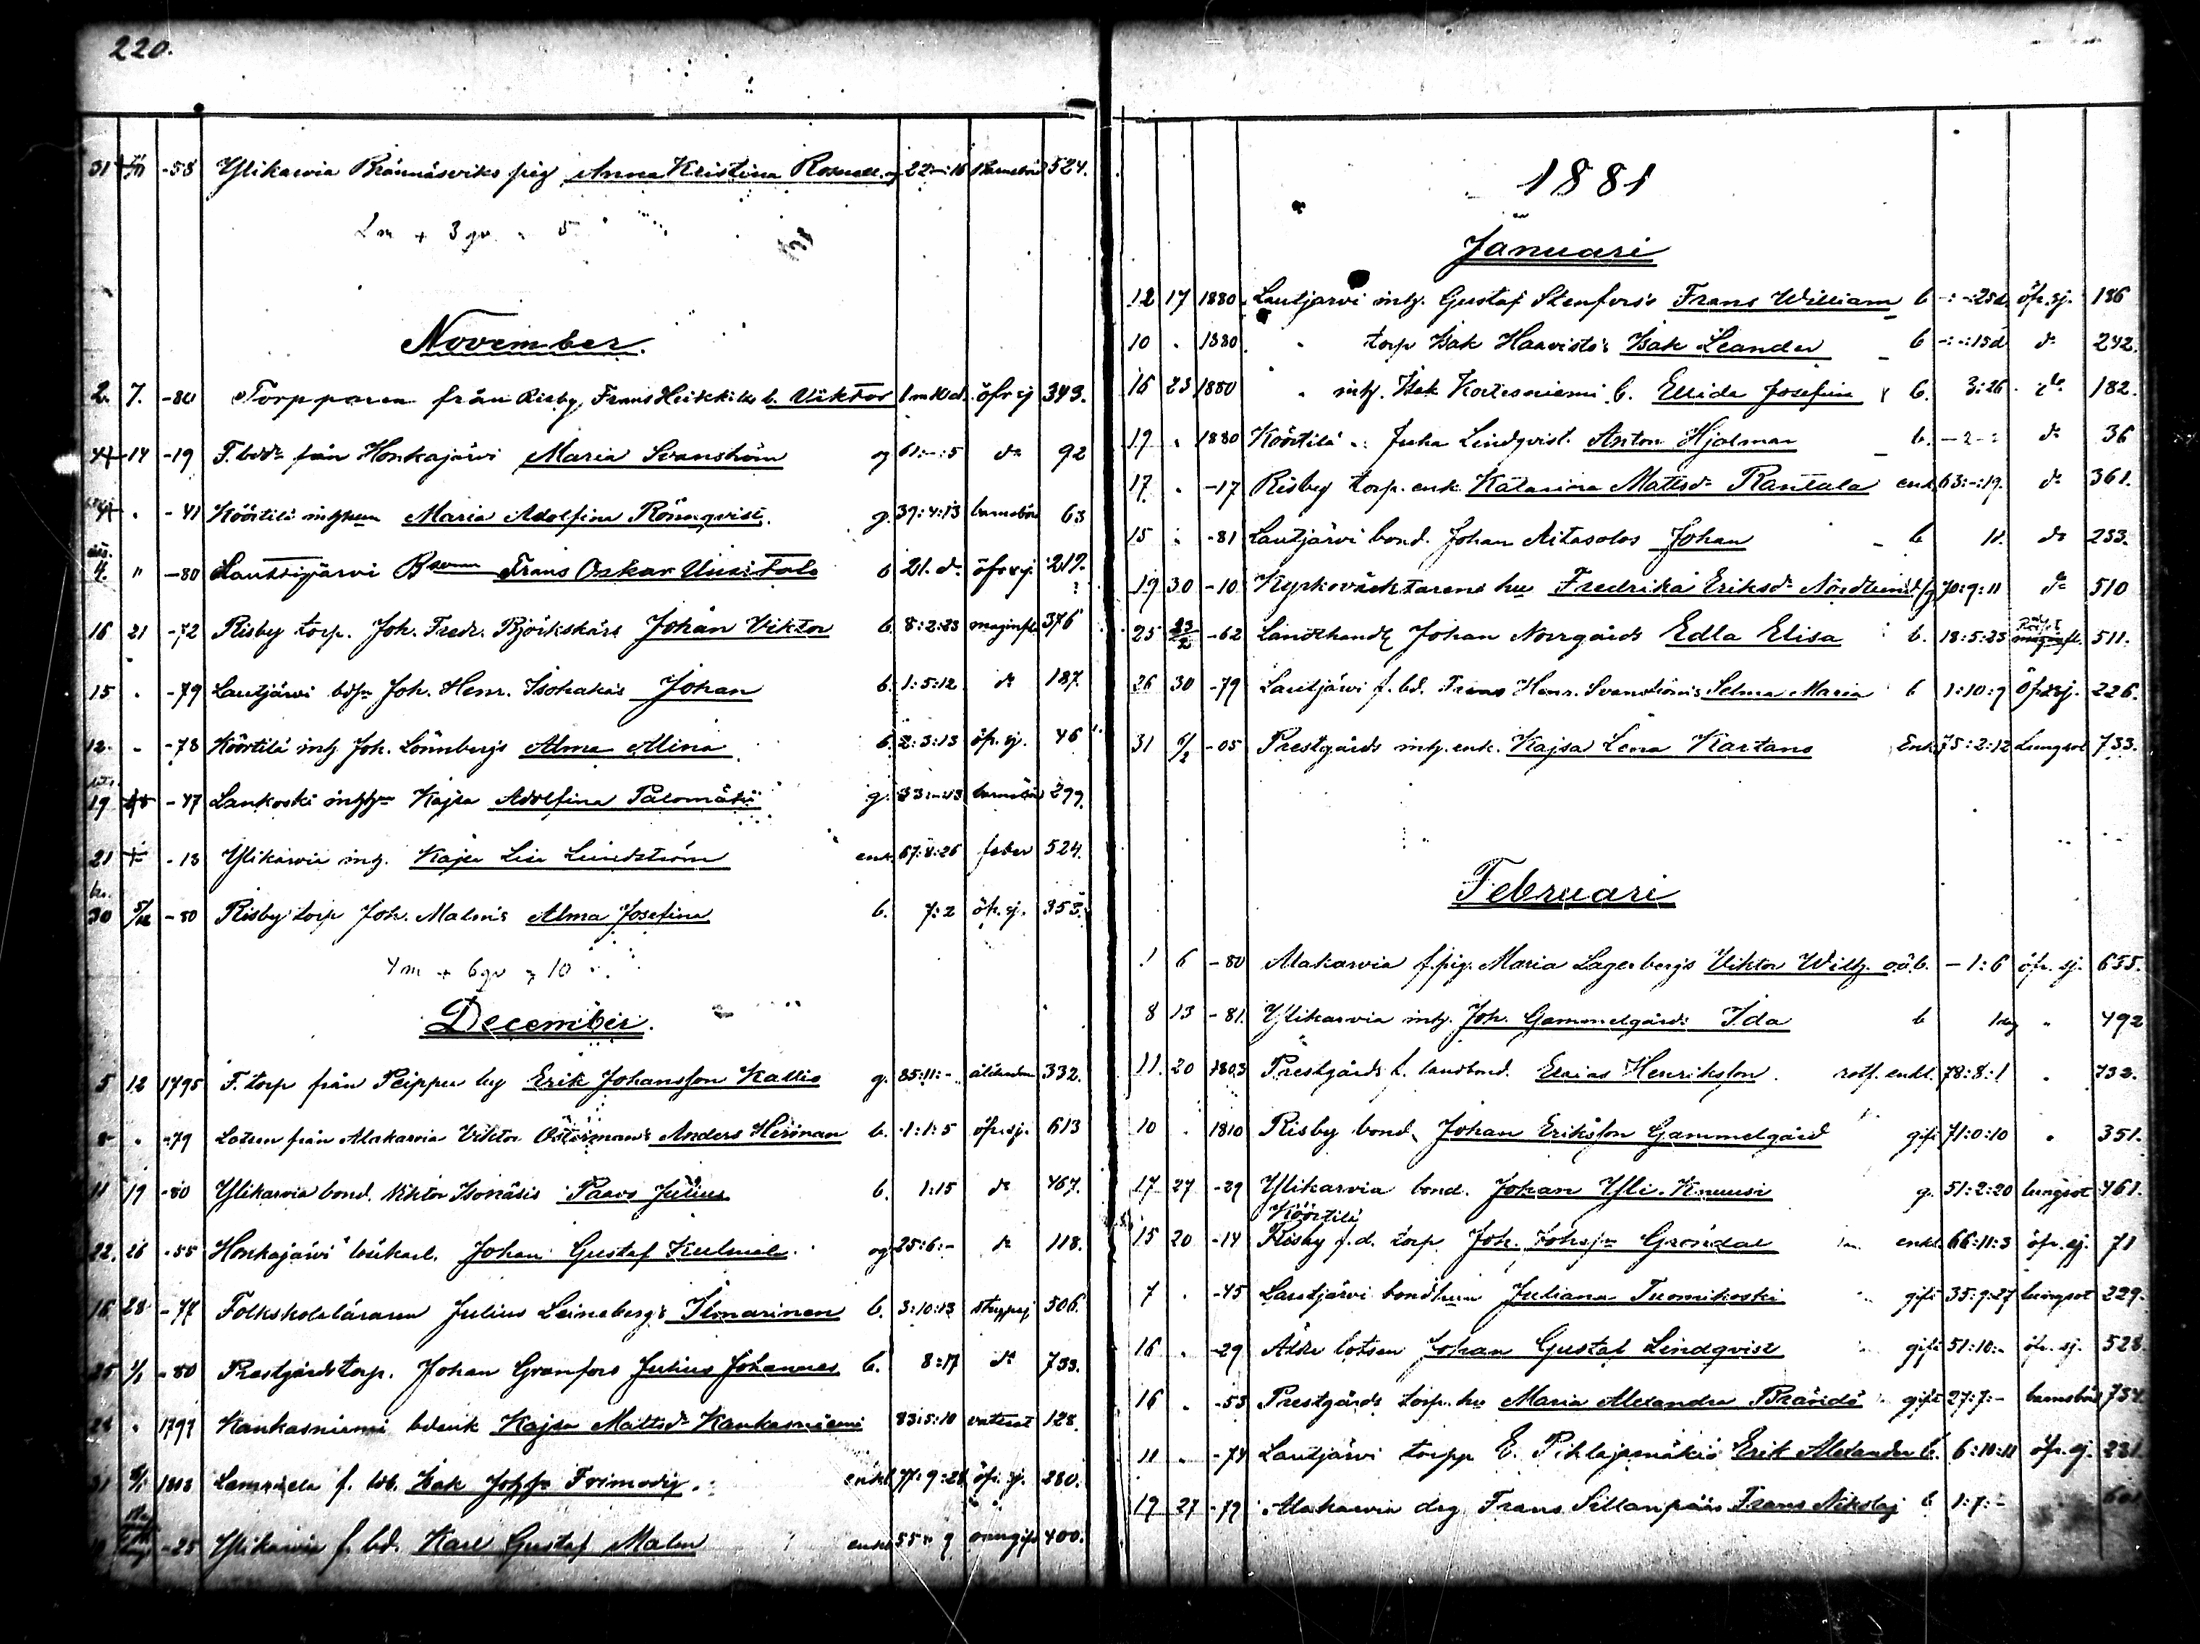 220.
31 -58 Ylikarvia Brännäsviks pig Anna Kristina og 22:-:16 barnsbörd 524.
2m + 3 qv = 5
November.
2. 7. -80 Torpparen från Risby Frans Heikkiläs b. Viktor 1 m 10 d. öfr sj 349.
14 -19 F. bdde från Honkajärvi Maria Svanström og 61:-:5 do 92
4 . -41 Köörtilä Maria Adolfina Rönnqvist. g. 39:4:13 barnsbörd 63
4. " -80 Lauttijärvi Frans Oskar Uusitalo b 21. d. öfr sj. 217.
16 21 -72 Risby torp. Joh. Fredr. Björkskärs Johan Viktor b. 8:2:23 maginfl. 376
15 . -79 Lautjärvi Joh. Henr. Isohakas Johan b. 1:5:12 do 187.
12. . -78 Köörtilä inh. Joh. Lönnbergs Alma Alina b. 2:3:13 öfr. sj. 46
19 -47 Lankoski Kajsa Adolfina Palomäki g. 33:-:23 barnsbörd 299.
21 -13 Ylikarvia inh. Kajsa Lisa Lundström enk. 67:8:26 feber 524.
30 5/12 -80 Risby torp Joh. Malms Alma Josefina b. 7:2 öfr. sj. 353.
4 m + 6 qv = 10
December.
5 12 1795 F. torp från Peippu by Erik Johansson Kallio g. 85:11:- ålderdom 332.
8 . -79 Lotsen från Alakarvia Viktor Östermans Anders Herman b. 1:1:5 öfr. sj. 613
11 19 -80 Ylikarvia bond. Viktor Isokäsis Paavo Julius b. 1:15 do 467.
22. 26 -55 Honkajärvi Johan Gustaf Kulmala og 25:6:- do 118.
16 28 -77 Folkskoleläraren Julius Leinebergs Ilmarinen b. 3:10:13 strypsj 506.
25 1/1 -80 Prestgårdstorp. Johan Granfors Julius Johannes b. 8:17 do 733.
24 . 1797 Kankasniemi bdenk Kajsa Mattsdr Kankasniemi 83:5:10 vattsot 128.
31 1803 Lamppela f. Isak Johsson Frimodig. enkl. 77:9:28 öfr. sj. 280.
-25 Ylikarvia f. bd. Karl Gustaf Malm enkl 55 " 9 400.
1881
Januari
12 17 1880 Lautjärvi inh. Gustaf Stenfors's Frans William b -:-:25d. öfr. sj. 186
10 . 1880 " torp Isak Haavistos Isak Leander b -:-:15d do 242.
16 23 1880 " inh. Isak Kortesniemi b. Ellida Josefina b. 3:26 do 182.
19 . 1880 Köörtilä Juha Lindqvist. Anton Hjalmar b. -2- do 36
17 . -17 Risby torp. enk. Katarina Mattsdr Rantala enk 63:-:19. do 361.
15 . -81 Lautjärvi bond. Johan Aitasalos Johan b 1t. do 233.
19 30 -10 Kyrkoväktarens hu Fredrika Eriksdr Nordlund g 70:9:11 do 510
25 23/2 -62 Landthandl Johan Norrgårds Edla Elisa b. 18:5:23 511.
26 30 -79 Lautjärvi f. bd. Frans Henr. Svanströms Selma Maria b 1:10:9 Öfr sj. 226.
31 6/2 -05 Prestgårds inh. enk. Kajsa Lena Kartano Enk 75:2:12 Lungsot 733.
Februari
1 6 -80 Alakarvia f. pig. Maria Lagerbergs Viktor Wilh. o.ä.b. -1:6 öfr. sj. 655.
8 13 -81. Ylikarvia inh. Joh. Gammelgårds Ida b 1 dag " 492
11. 20 1803 Prestgårds f. landbond. Esaias Henriksson. rotf. enkl. 78:8:1 . 732.
10 . 1810 Risby bond. Johan Eriksson Gammelgård gift 71:0:10 " 351.
17 27 -29 Ylikarvia bond. Johan Yli-Knuusi g. 51:2:20 lungsot 461.
Köörtilä
15 20 -14 Risby f.d. torp. Joh. Johsson Gröndal enkl. 66:11:3 öfr. sj. 71
7 . -45 Lautjärvi bondhun Juliana Tuomikoski gift 35:9:27 lungsot 229.
16 . -29 Äldre lotsen Johan Gustaf Lindqvist gift 51:10:- öfr. sj. 528.
16 . -53 Prestgårds torp. hu Maria Alexandra Brändö gift 27:7:- barnsbörd 734
11 . -74 Lautjärvi torpp E. Pihlajamäkis Erik Alexander b. 6:10:11 öfr. sj. 231.
19 27 -79 Alakarvia drg Frans Sillanpääs Frans Nikolaj b 1:7:-